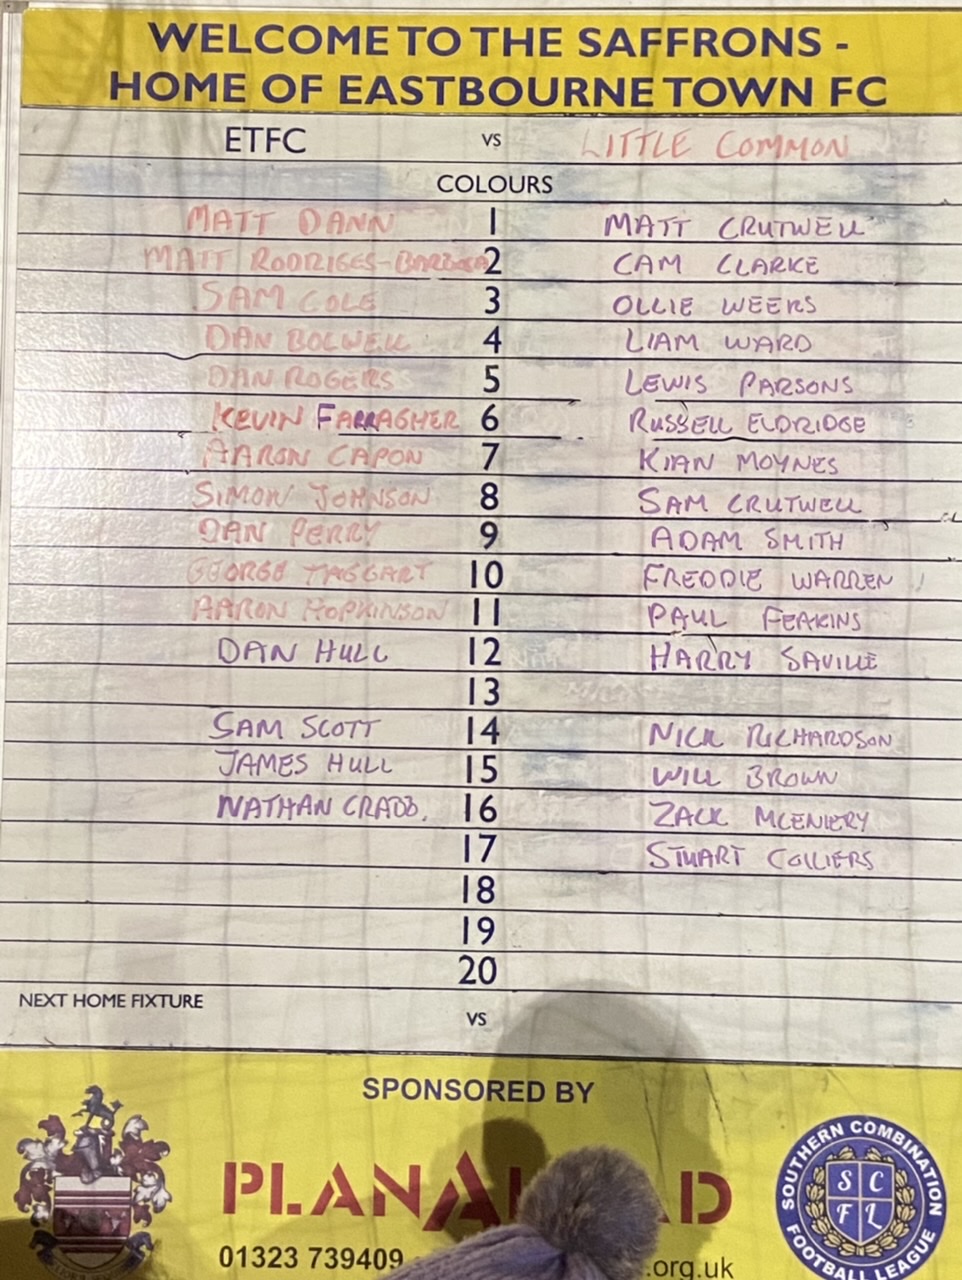 WELCOME TO THE SAFFRONS -
HOME OF EASTBOURNE TOWN FC
ETFC vs LITTLE COMMON
COLOURS
MATT DANN 1 MATT CRUTWELL
MATT RODRIGES-BARBOSA 2 CAM CLARKE
SAM COLE 3 OLLIE WEERS
DAN BOLWELL 4 LIAM WARD
DAN ROGERS 5 LEWIS PARSONS
KEVIN FARRAGHER 6 RUSSELL ELDRIDGE
AARON CAPON 7 KIAN MOYNES
SIMON JOHNSON 8 SAM CRUTWELL
DAN PERRY 9 ADAM SMITH
GEORGE TAGGART 10 FREDDIE WARREN
AARON HOPKINSON 11 PAUL FEAKINS
DAN HULL 12 HARRY SAVILLE
13
SAM SCOTT 14 NICK RICHARDSON
JAMES HULL 15 WILL BROWN
NATHAN CRABB. 16 ZACK MCENIERY
17 STUART COLLIERS
18
19
20
NEXT HOME FIXTURE
VS
SPONSORED BY
PLANA D
01323 739409 .org.uk
SOUTHERN COMBINATION
FOOTBALL LEAGUE
S C
F L